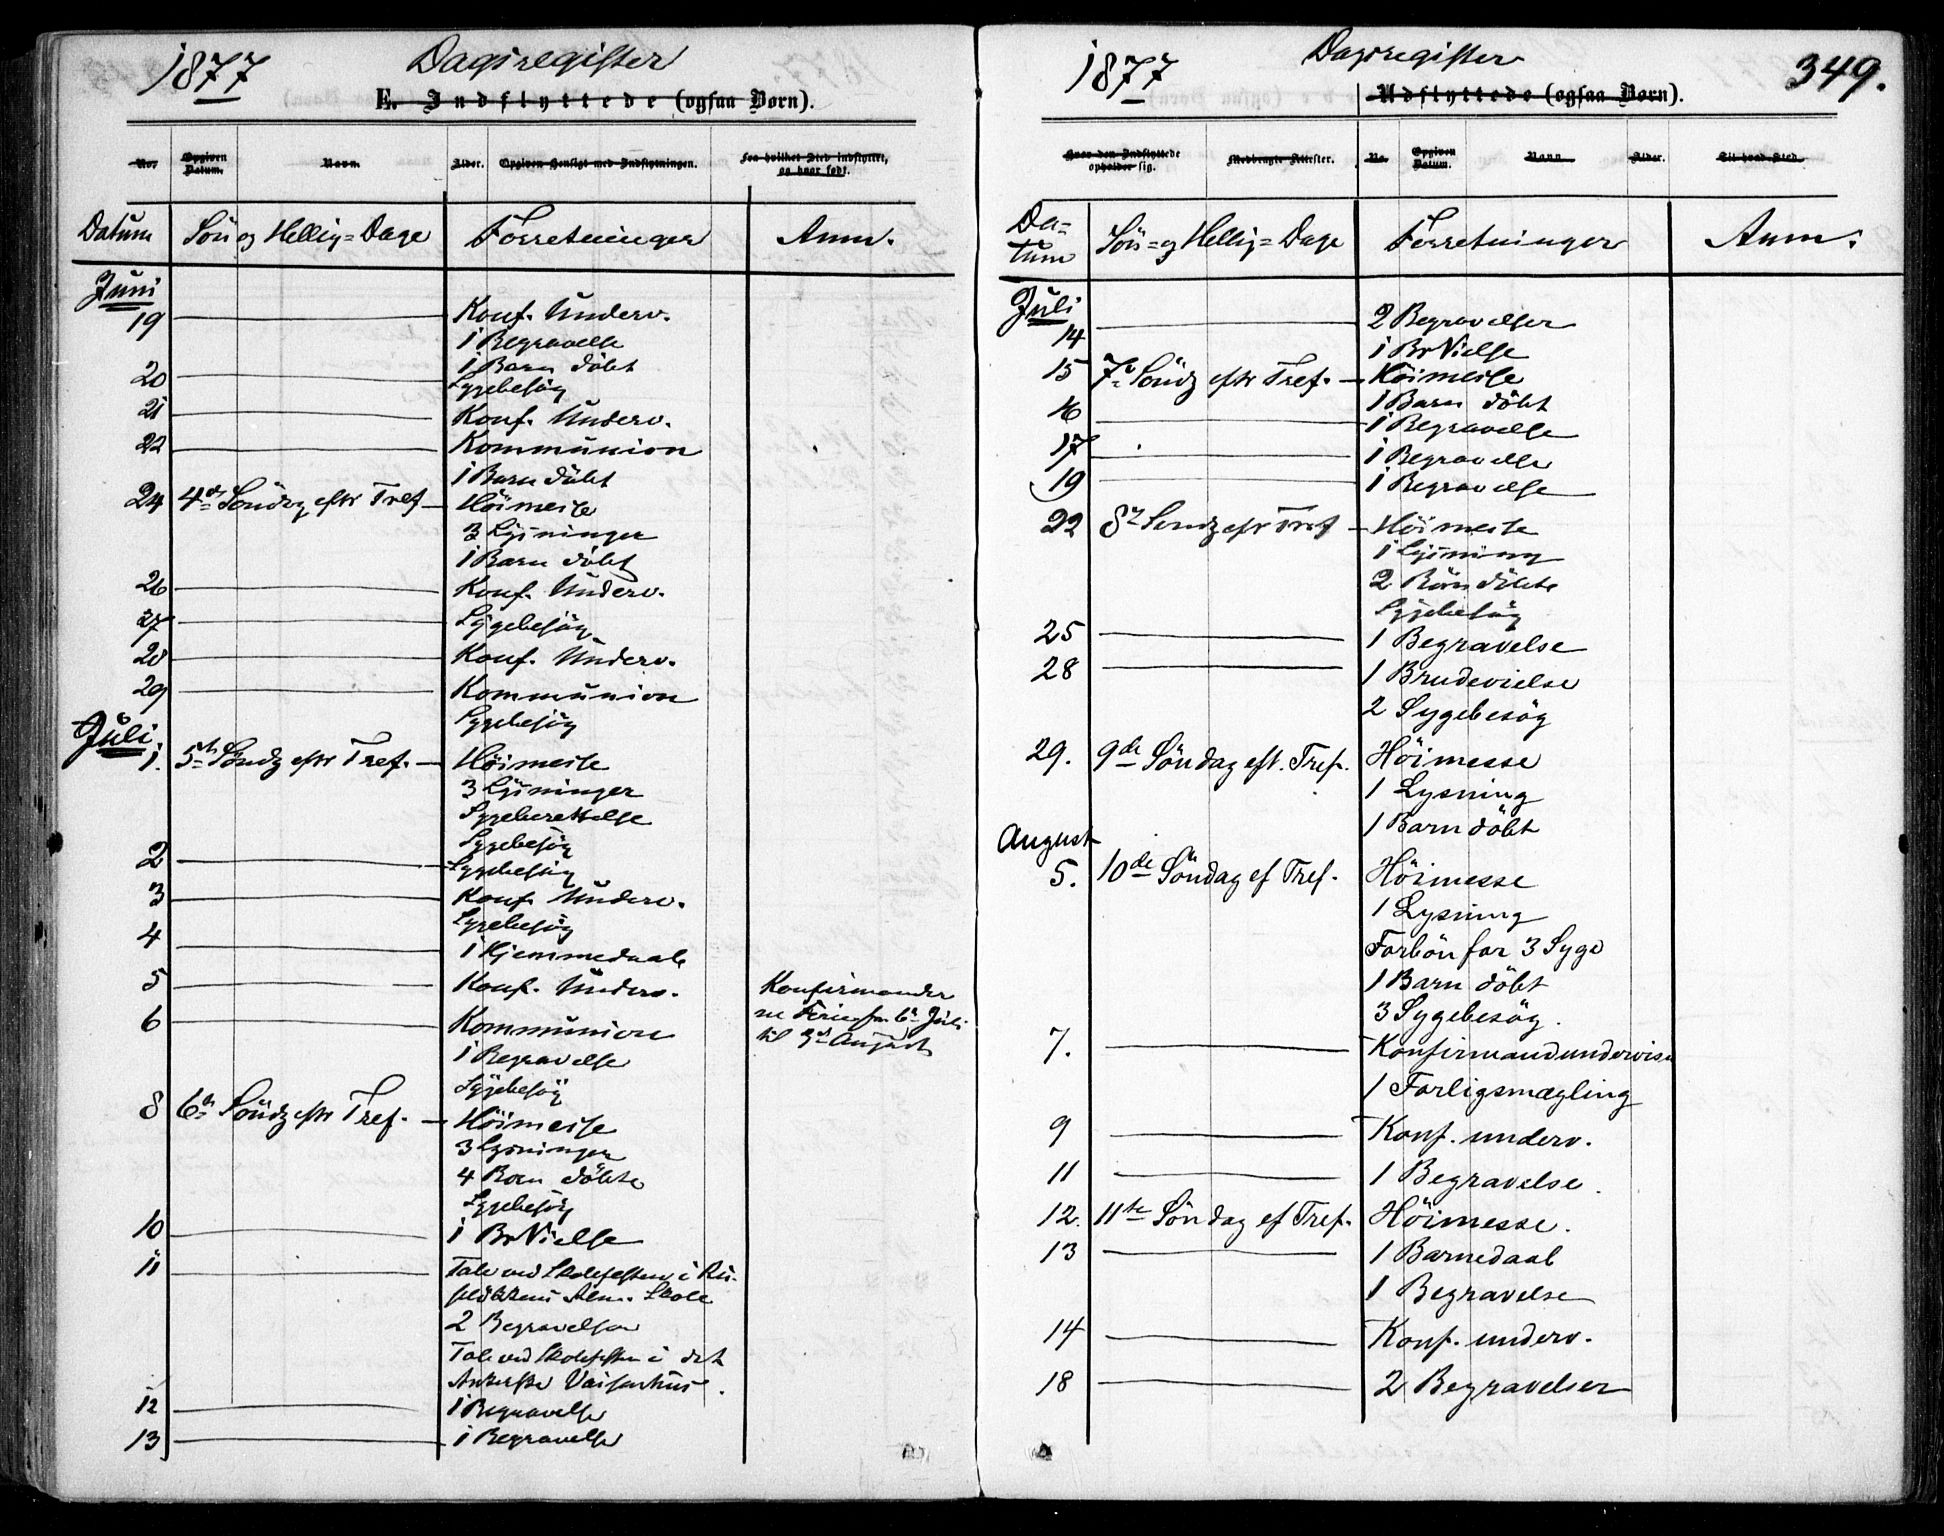 1877 Dagsregister
E. Indflyttede (ogsaa Børn).
No. Opgiven Datum. Navn. Alder. Opgiven Hensigt med Indflytningen. Fra hvilket Sted indflyttet, og hvor født.
Datum Søn og Hellig=Dage Forretninger Anm.
Juni
19 Konf. Underv.
1 Begravelse
1 Barn döbt
20 Sygebesög
21 Konf. Underv.
22 Kommunion
1 Barn döbt
24 4de Söndg eftr Tref Höimesse
3 Lysninger
1 Barn döbt
26 Konf. Underv.
27 Sygebesög
28 Konf. Underv.
29 Kommunion
Sygebesög
Juli
1. 5te Söndg eftr Tref. Höimesse
3 Lysninger
Sygeberettelse
Sygebesög
2 Sygebesög
3 Konf. Underv.
Sygebesög
4 1 Hjemmedaab
5 Konf. Underv. Konfirmander
ne Ferie fra 6te Juli
til August
6 Kommunion
1 Begravelse
Sygebesög
8 6te Söndg eftr Tref. Höimesse
3 Lysninger
4 Börn döbte
Sygebesög
10 1 BrVielse
11 Tale ved Skolefesten i
Alm. Skole
2 Begravelser
Tale ved Skolefesten i det
Ankerske Vaisenhus.
12 1 Begravelse
13 1 Begravelse
1877 Dagsregister 349.
Udflyttede (ogsaa Børn).
Hvor den Indflyttede opholder sig. Medbragte Attester. No. Opgiven Datum. Navn. Alder. Til hvad Sted.
Da=
tum Søn= og Hellig=Dage Forretninger Anm.
Juli
14 2 Begravelser
1 BrVielse
15 7de Söndg eftr Tref. Höimesse
1 Barn döbt
16 1 Begravelse
17 1 Begravelse
19 1 Begravelse
22 8de Söndg eftr Tref Höimesse
1 Lysning
2 Börn döbte
Sygebesög
25 1 Begravelse
28 1 Brudevielse
2 Sygebesög
29. 9de Söndag eft. Tref. Höimesse
1 Lysning
1 Barn döbt
August
5. 10de Söndag ef Tref. Höimesse
1 Lysning
Forbön for 3 Syge
1 Barn döbt
3 Sygebesög.
7. Konfirmandundervisn
1 Forligsmægling
9 Konf. underv.
11 1 Begravelse.
12. 11te Söndag ef Tref. Höimesse.
13 1 Barnedaab
1 Begravelse
14 Konf. underv.
18 2 Begravelser